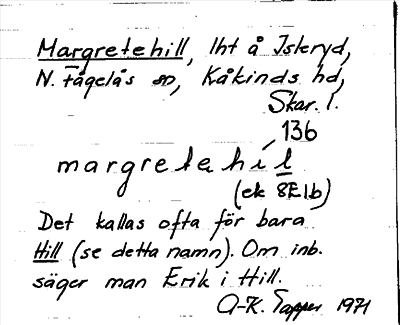 Margretehill, lht å Iskryd,
N. Fågelås sn, Kåkinds hd,
Skar. l.
136
margretahil
(ek 8E1b)
Det kallas ofta för bara
Hill (se detta namn). Om inb.
säger man Erik i Hill.
A-K. Tapper 1971